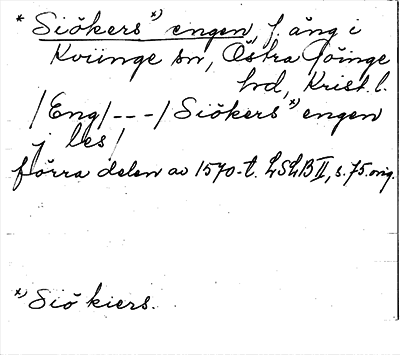 * Siökers *) engen, f. äng i
Kviinge sn, Östra Göinge
hd, Krist. l.
/Eng/---/Siökers *) engen
j les/
förra delen av 1570-t. LSLB II, s. 75. orig.
*) Siö kiers.